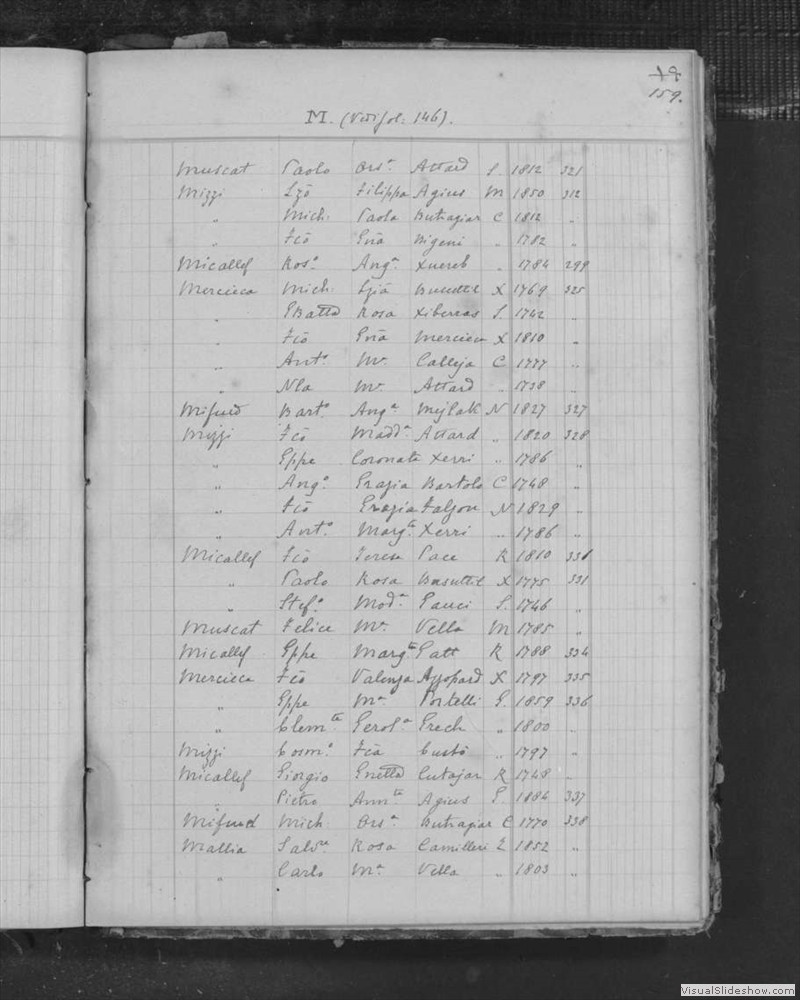 19
159.
M. (Vedi fol: 146).
Muscat Paolo Ors.a Attard S. 1812 321
Mizzi Lzō Filippa Agius M 1850 312
„ Mich: Paola Buttagiar C 1812 „
„ Fcō Gnā Bigeni „ 1782 „
Micallef Ros.o Ang.a Xuereb „ 1784 299
Mercieca Mich: Ljiā Busuttil X 1769 325
„ GBatta Rosa Xiberras S. 1742 „
„ Fcō Gnā Mercieca X 1810 „
„ Ant.o M.a Calleja C 1777 „
„ Nla M.a Attard „ 1738 „
Mifsud Bart.o Ang.a Mejlak N 1827 327
Mizzi Fcō Madd.a Attard „ 1820 328
„ Gppe Coronata Xerri „ 1786 „
„ Ang.o Grazia Bartolo C 1748 „
„ Fcō Grazia Falzon N 1829 „
„ Ant.o Marg.ta Xerri „ 1786 „
Micallef Fcō Teresa Pace R 1810
„ Paolo Rosa Busuttil X 1775 331
„ Stef.o Mad.a Gauci S. 1746 „
Muscat Felice M.a Vella M 1785 „
Micallef Gppe Marg.ta Gatt R 1788 334
Mercieca Fcō Valenza Azzopard X 1797 335
„ Gppe M.a Portelli G. 1859 336
„ Clem.te Gerol.a Grech „ 1800 „
Mizzi Cosm.o Fcā Custō „ 1797 „
Micallef Giorgio Gnetta Cutajar R 1748 „
„ Pietro Ann.tta Agius G. 1884 337
Mifsud Mich: Ors.a Buttagiar C 1770 338
Mallia Salv.re Rosa Camilleri L 1852 „
„ Carlo M.a Vella „ 1803 „
VisualSlideshow.com